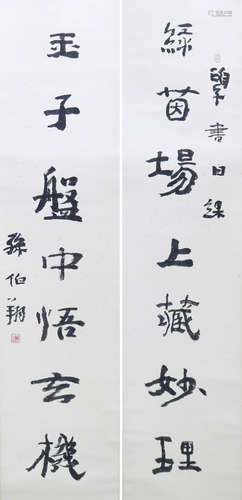 綠茵場上藏妙理
書日課
玉子盤中悟玄機
孫伯翔